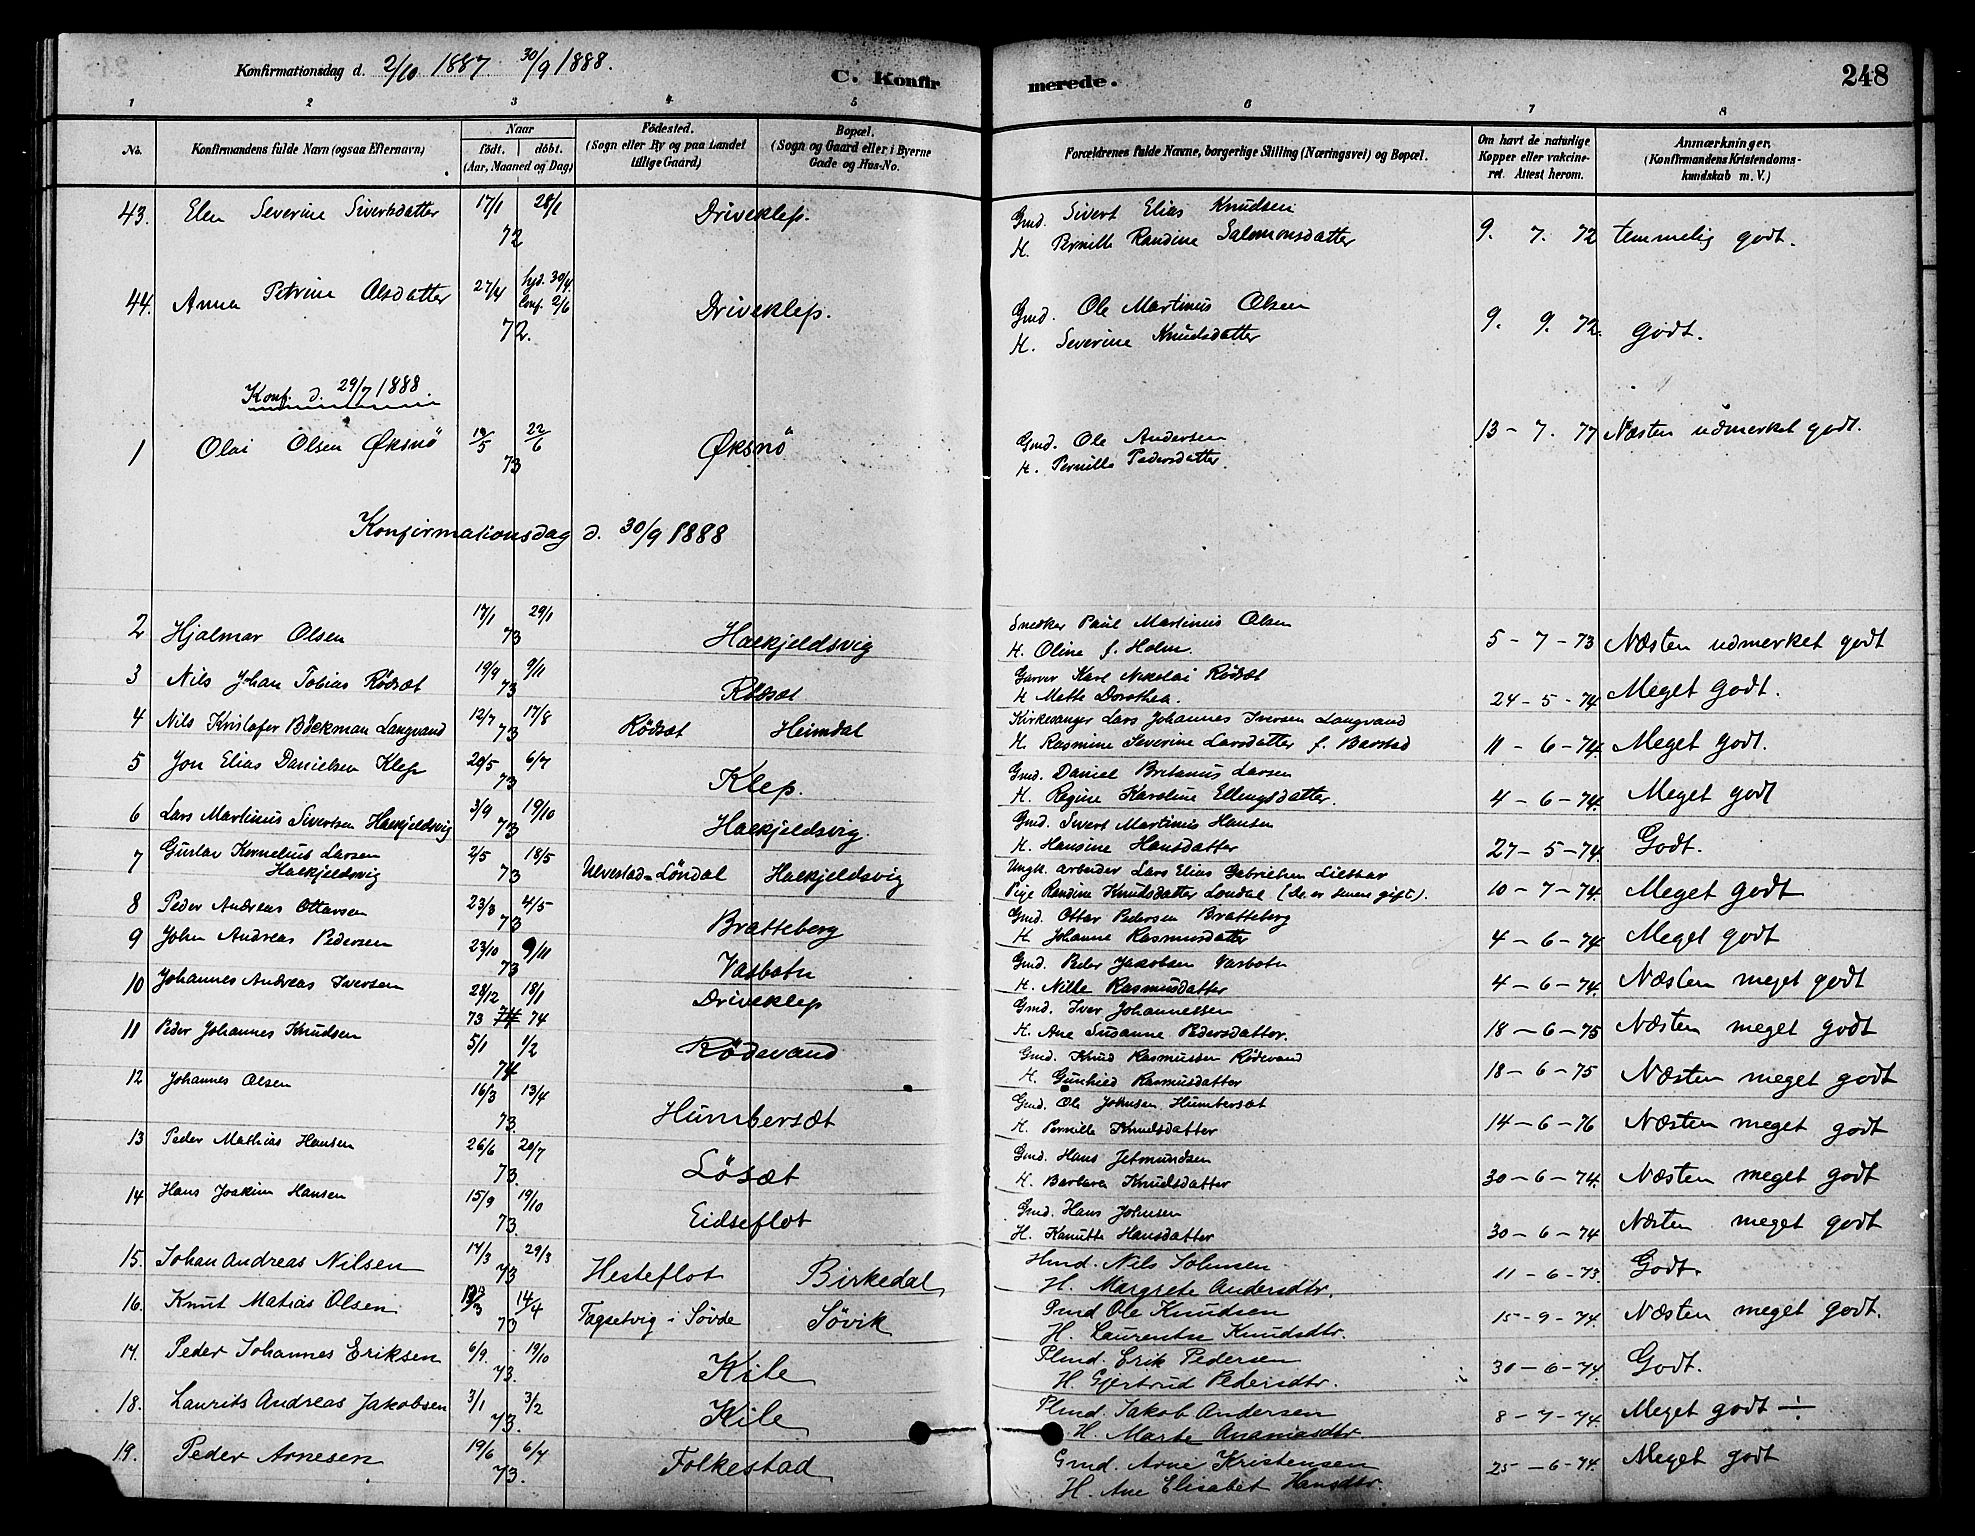 Konfirmationsdag d. 2/10 1887 30/9 1888.
C. Konfirmerede.
248
1 2 3 4 5 6 7 8
No. Konfirmandens fulde Navn (ogsaa Efternavn) Naar født. døbt. (Aar, Maaned og Dag) Fødested. (Sogn eller By og paa Landet tillige Gaard) Bopæl. (Sogn og Gaard eller i Byerne Gade og Hus-No. Forældrenes fulde Navne, borgerlige Stilling (Næringsvei) og Bopæl. Om havt de naturlige Kopper eller vakcineret. Attest herom. Anmærkninger. (Konfirmandens Kristendomskundskab m. V.)
43. Elen Severine Sivertsdatter 17/1 28/1 72 Driveklep. Gmd. Sivert Elias Knudsen 9. 7. 72 temmelig godt.
H. Pernille Randine Salomonsdatter
44. Anna Petrine Olsdatter 27/4 hjd. 30/4 conf. 2/6 72. Driveklep. Gmd. Ole Martinus Olsen 9. 9. 72. godt.
H. Severine Knudsdatter
Konf. d. 29/7 1888
1 Olai Olsen Øksnö 19/5 22/6 73 Øksnö Gmd. Ole Andersen 13-7. 77 Næsten udmerket godt.
H. Pernille Pedersdatter.
Konfirmationsdag d. 30/9 1888
2 Hjalmar Olsen 17/1 29/1 73 Haekjeldsvig Snedker Paul Martinus Olsen 5-7-73 Næsten udmerket godt
H. Oline f. Holm.
3 Nils Johan Tobias Rödsæt 19/9 9/11 73 Rödsæt Garver Karl Nikolai Rödsæt 24-5-74 Meget godt.
H Mette Dorothea.
4 Nils Kristofer Böckman Langvand 12/7 17/8 73 Rödsæt Heimdal Kirkesanger Lars Johannes Iversen Langvand 11-6-74. Meget godt.
H. Rasmine Severine Larsdatter f. Barstad
5 Jon Elias Danielsen Klep 20/5 6/7 73 Klep. Gmd. Daniel Britanus Larsen 4-6-74. Meget godt
H. Regine Karoline Ellingsdatter.
6 Lars Martinus Sivertsen Haekjeldsvig 3/9 19/10 73 Haekjeldsvig. Gmd. Sivert Martinus Hansen 27-5-74. Godt.
H. Hansine Hansdatter
7 Gustav Kornelius Larsen Haekjeldsvig 2/5 18/5 73 Ulvestad-Löndal Haekjeldsvig Ungk. arbeider Lars Elias Gabrielsen 10-7-74. Meget godt
Pige Randine Knudsdatter Londal (de er senere gift).
8 Peder Andreas Ottarsen 23/3 4/5 73 Bratteberg Gmd. Ottar Pedersen Bratteberg 4-6-74 Meget godt
H. Johanne Rasmusdatter
9 John Andreas Pedersen 23/10 9/11 73 Vasbotn Gmd. Peder Jakobsen Vasbotn 4-6-74. Næsten meget godt
H. Nille Rasmusdatter
10 Johannes Andreas Iversen 28/12 18/1 73 74 74 Driveklep Gmd. Iver Johannessen 18-6-75 Næsten meget godt
H. Ane Susanne Pedersdatter.
11 Peder Johannes Knudsen 5/1 1/2 74 Rödevand Gmd. Knud Rasmussen Rödevand 18-6-75 Næsten meget godt
H. Gunhild Rasmusdatter
12 Johannes Olsen 16/3 13/4 73. Humbersæt Gmd. Ole Johnsen Humbersæt 14-6-76 Næsten meget godt
H. Pernille Knudsdatter
13 Peder Mathias Hansen 26/6 20/7 73. Lösæt Gmd. Hans Jetmundsen 30-6-74. Næsten meget godt
H. Barbara Knudsdatter
14 Hans Joakim Hansen 15/9 19/10 73. Eidseflot Gmd. Hans Johnsen 30-6-74 Næsten meget godt
H. Kanutte Hansdatter
15. Johan Andreas Nilsen 14/3 29/3 73 Hesteflot Birkedal Hmd. Nils Johnsen 11-6-73. Godt.
H. Margrete Andersdtr.
16. Knut Matias Olsen 14/4 73 i Søvde Søvik Pmd Ole Knudsen 15-9-74. Næsten meget godt.
H. Laurentse Knudsdtr.
17. Peder Johannes Eriksen 6/9. 19/10 73. Kile Plmd. Erik Pedersen 30-6-74. Godt.
H. Gjertrud Pedersdtr.
18. Laurits Andreas Jakobsen 3/1 3/2 73. Kile Plmd. Jakob Andersen 8-7-74. Meget godt ÷
H. Marte Ananiasdtr
19. Peder Arnesen 19/6 6/7 73. Folkestad Gmd. Arne Kristensen 25-6-74. Meget godt
H. Ane Elisabet Hansdtr.